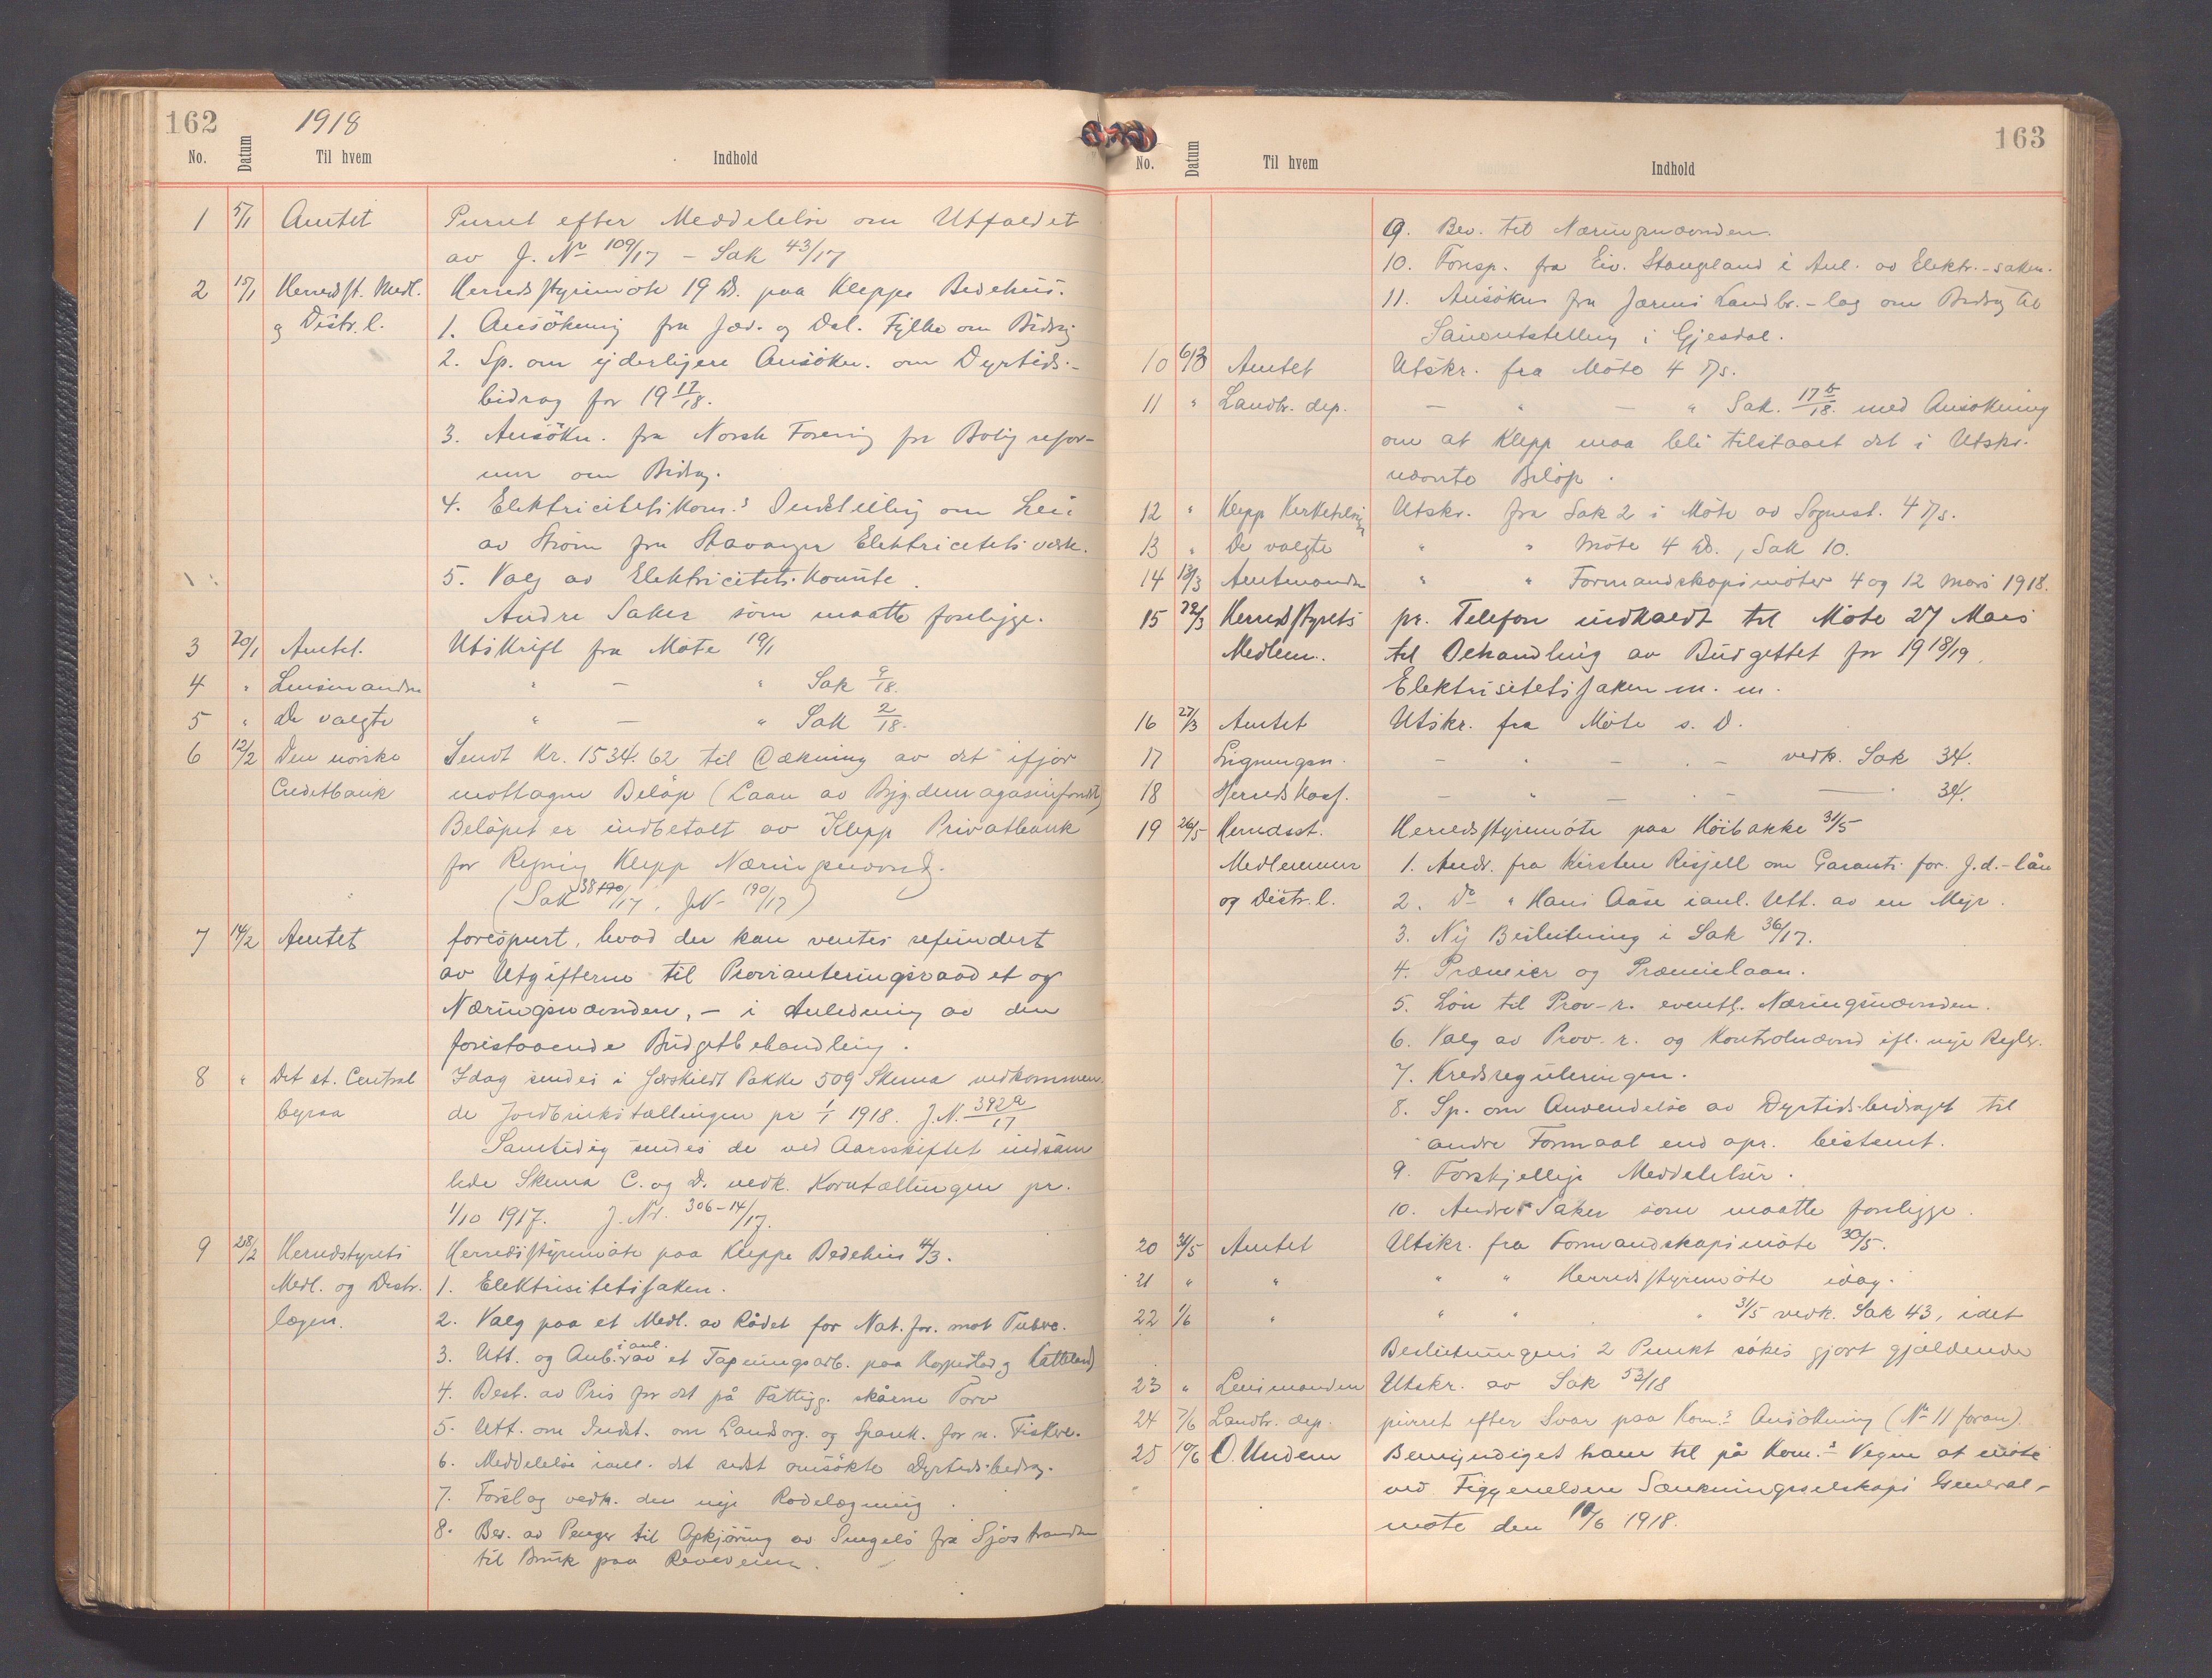 162
1918
No. Datum Til hvem Indhold
1 5/1 Amtet Purret efter Meddelelse om Utfaldet
av J. No 109/17 - Sak 43/17
2 15/1 Herredsst. Medl. Herredsstyremöte 19 ds. paa Kleppe Bedehus.
og Distr.l. 1. Ansökning fra Jæd. og Dal. Fylke om Bidrag
2. Sp. om yderligere Ansökn. om Dyrtids-
bidrag for 19 17/18.
3. Ansökn. fra Norsk Forening for Bolig refor-
mer om Bidrag.
4. Elektricitetskom.s Indstilling om Leie
av Ström fra Stavanger Elektricitetsverk.
5. Valg av Elektricitets. Komite.
Andre Saker som maatte foreligge.
3 20/1 Amtet. Utskrift fra Möte 19/1
4 " Lensmanden " — " Sak 9/18.
5 " De valgte " — " Sak 2/18.
6 12/2 Den norske Sendt Kr. 1534.62 til Dækning av det ifjor
Creditbank mottagne Belöp (Laan av Bygdemagasinfondet)
Belöpet er indbetalt av Klepp Privatbank
for Regning Klepp Næringsnevnd.
(Sak 38/17, JN- 190/17)
7 14/2 Amtet forespurt, hvad der kan ventes refundert
av Utgifterne til Provianteringsraadet og
Næringsnævnden, - i Anledning av den
forestaaende Budgetbehandling.
8 " Det st. Central Idag sendes i særskildt Pakke 509 Skema vedkommen-
byraa de Jordbrukstællingen pr 1/1 1918. J.N. 392a/17
Samtidig sendes de ved Aarsskiftet indsam
lede Skema C. og D. vedk. Korntællingen pr.
1/10 1917. J. Nr. 306-14/17.
9 28/2 Herredstyrets Herredsstyremöte paa Kleppe Bedehus 4/3.
Medl. og Distr. 1. Elektrisitetssaken.
lægen. 2. Valg paa et Medl. av Rådet for Nat. for. mot Tuberc.
3. Utt. og Anb. i anl. av et Tapningsarb. paa og
4. Best. av Pris for det på Fattigg. skårne Torv
5. Utt. om Indst. om Landsorg. og Spark. for n. Fiskve.
6. Meddelelse ianl. det sidst ansökte Dyrtids-bidrag.
7. Forslag vedk. den nye Rodelægning.
8. Bev. av Penger til Opkjöring av Singels fra Sjöstranden
til Bruk paa Reveveien.
163
No. Datum Til hvem Indhold
9. Bev. til Næringsnævnden.
10. Foresp. fra Eiv. Stangeland i Anl. av Elektr.-saken.
11. Ansökn fra Jærens Landbr.-lag om Bidrag til
Saueutstelling i Gjesdal.
10 6/3 Amtet Utskr. fra Möte 4 ds.
11 " Landbr. dep. — " — " Sak. 17b/18. med Ansökning
om at Klepp maa bli tilstaaet det i Utskr.
nævnte Belöp.
12 " Klepp Kirketilsyn Utskr. fra Sak 2 i Möte av Sognest. 4 ds.
13 " De valgte " " Möte 4 ds., Sak 10.
14 13/3 Amtmanden " " Formandskapsmöter 4 og 12 Mars 1918.
15 22/3 Herredsstyrets pr. Telefon indkaldt til Möte 27 Mars
Medlem. til Behandling av Budgettet for 19 18/19,
Elektrisitetssaken m. m.
16 27/3 Amtet Utskr. fra Möte s. D.
17 Ligningsn. — " — " — vedk. Sak 34.
18 Herredskass. — " — " — 34.
19 26/5 Herredsst. Herredsstyremöte paa Höibakke 31/5
Medlemmer 1. Andr. fra Kirsten Risjell om Garanti for J.d.-lån
og Distr.l. 2. Do " Hans Aase ianl. Utt. av en Myr.
3. Ny Beslutning i Sak 36/17.
4. Præmier og Præmielaan.
5. Lön til Prov-r. eventl. Næringsnævnden.
6. Valg av Prov. r. og Kontrolnævnd ifl. nye Regler.
7. Kredsreguleringen.
8. Sp. om Anvendelse av Dyrtids-bidraget til
andre Formaal end opr. bestemt.
9. Forskjellige Meddelelser.
10. Andre Saker som maatte foreligge.
20 31/5 Amtet Utskr. fra Formandskapsmöte 30/5.
21 " " " " Herredsstyremöte idag.
22 1/6 " " " " 31/5 vedk. Sak 43, idet
Beslutningens 2 Punkt sökes gjort gjældende
23 " Lensmanden Utskr. av Sak 53/18
24 7/6 Landbr. dep. purret efter Svar paa Kom.s Ansökning (No 11 foran).
25 10/6 O. Undem Bemyndiget ham til på Kom.s Vegne at möte
ved Figgenelven Sænkningsselskaps General-
möte den 10/6 1918.